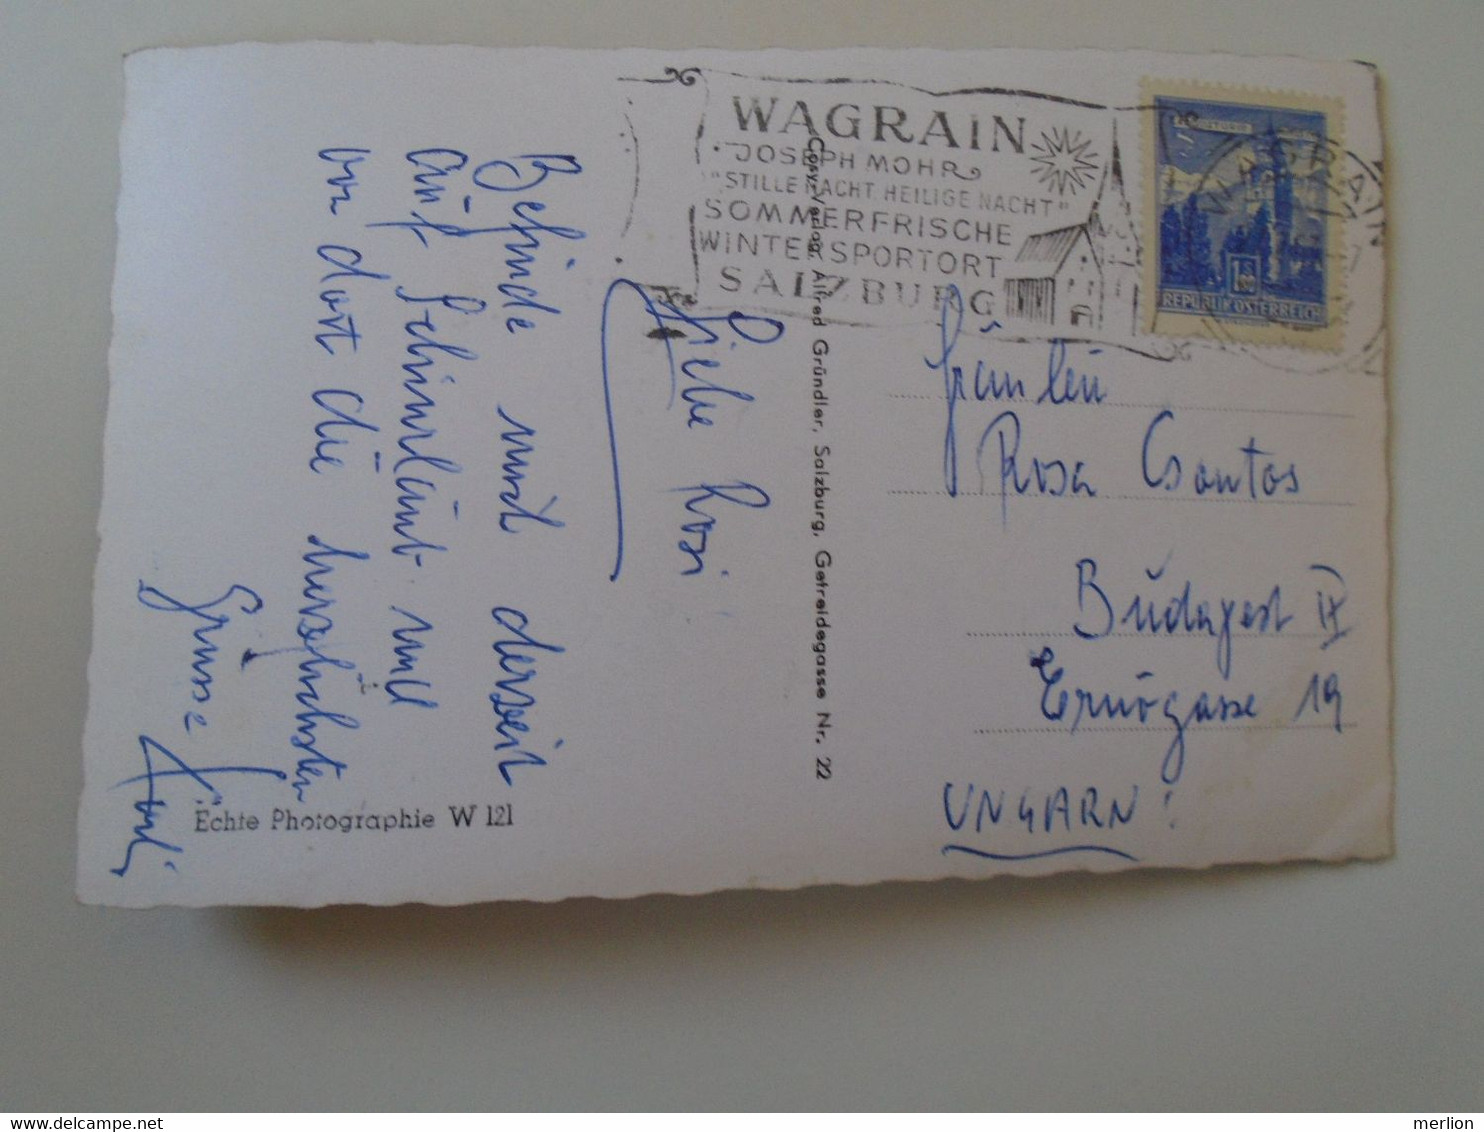 WAGRAIN
JOSEPH MOHR
"STILLE NACHT, HEILIGE NACHT"
SOMMERFRISCHE
WINTERSPORTORT
SALZBURG
WAGRAIN
REPUBLIK ÖSTERREICH
Liebe Rosi
Befinde mich derzeit
auf Schiurlaub und
von dort die herzlichsten
Grüsse
Echte Photographie W 121
Cosy-Verlag Alfred Gründler, Salzburg, Getreidegasse Nr. 22
Fräulein
Rosa Csontos
Budapest IX
Ernőgasse 19
UNGARN!
merlion